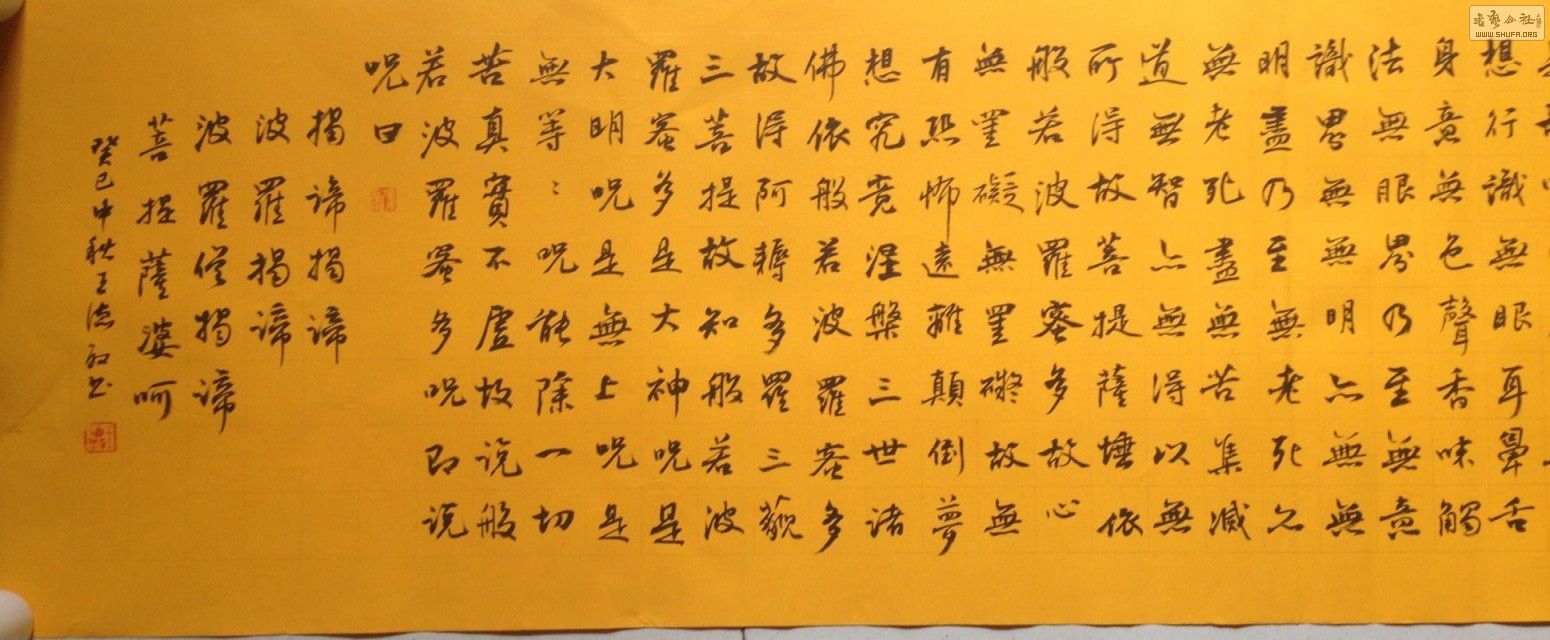 想行識無眼耳鼻舌
身意無色聲香味觸
法無眼界乃至無意
識界無無明亦無無
明盡乃至無老死亦
無老死盡無苦集滅
道無智亦無得以無
所得故菩提薩埵依
般若波羅蜜多故心
無罣礙無罣礙故無
有恐怖遠離顛倒夢
想究竟涅槃三世諸
佛依般若波羅蜜多
故得阿耨多羅三藐
三菩提故知般若波
羅蜜多是大神呪是
大明呪是無上呪是
無等〻呪能除一切
苦真實不虛故說般
若波羅蜜多呪即說
呪曰
揭諦揭諦
波羅揭諦
波羅僧揭諦
菩提薩婆呵
癸巳中秋王德书
書藝公社
WWW.SHUFA.ORG